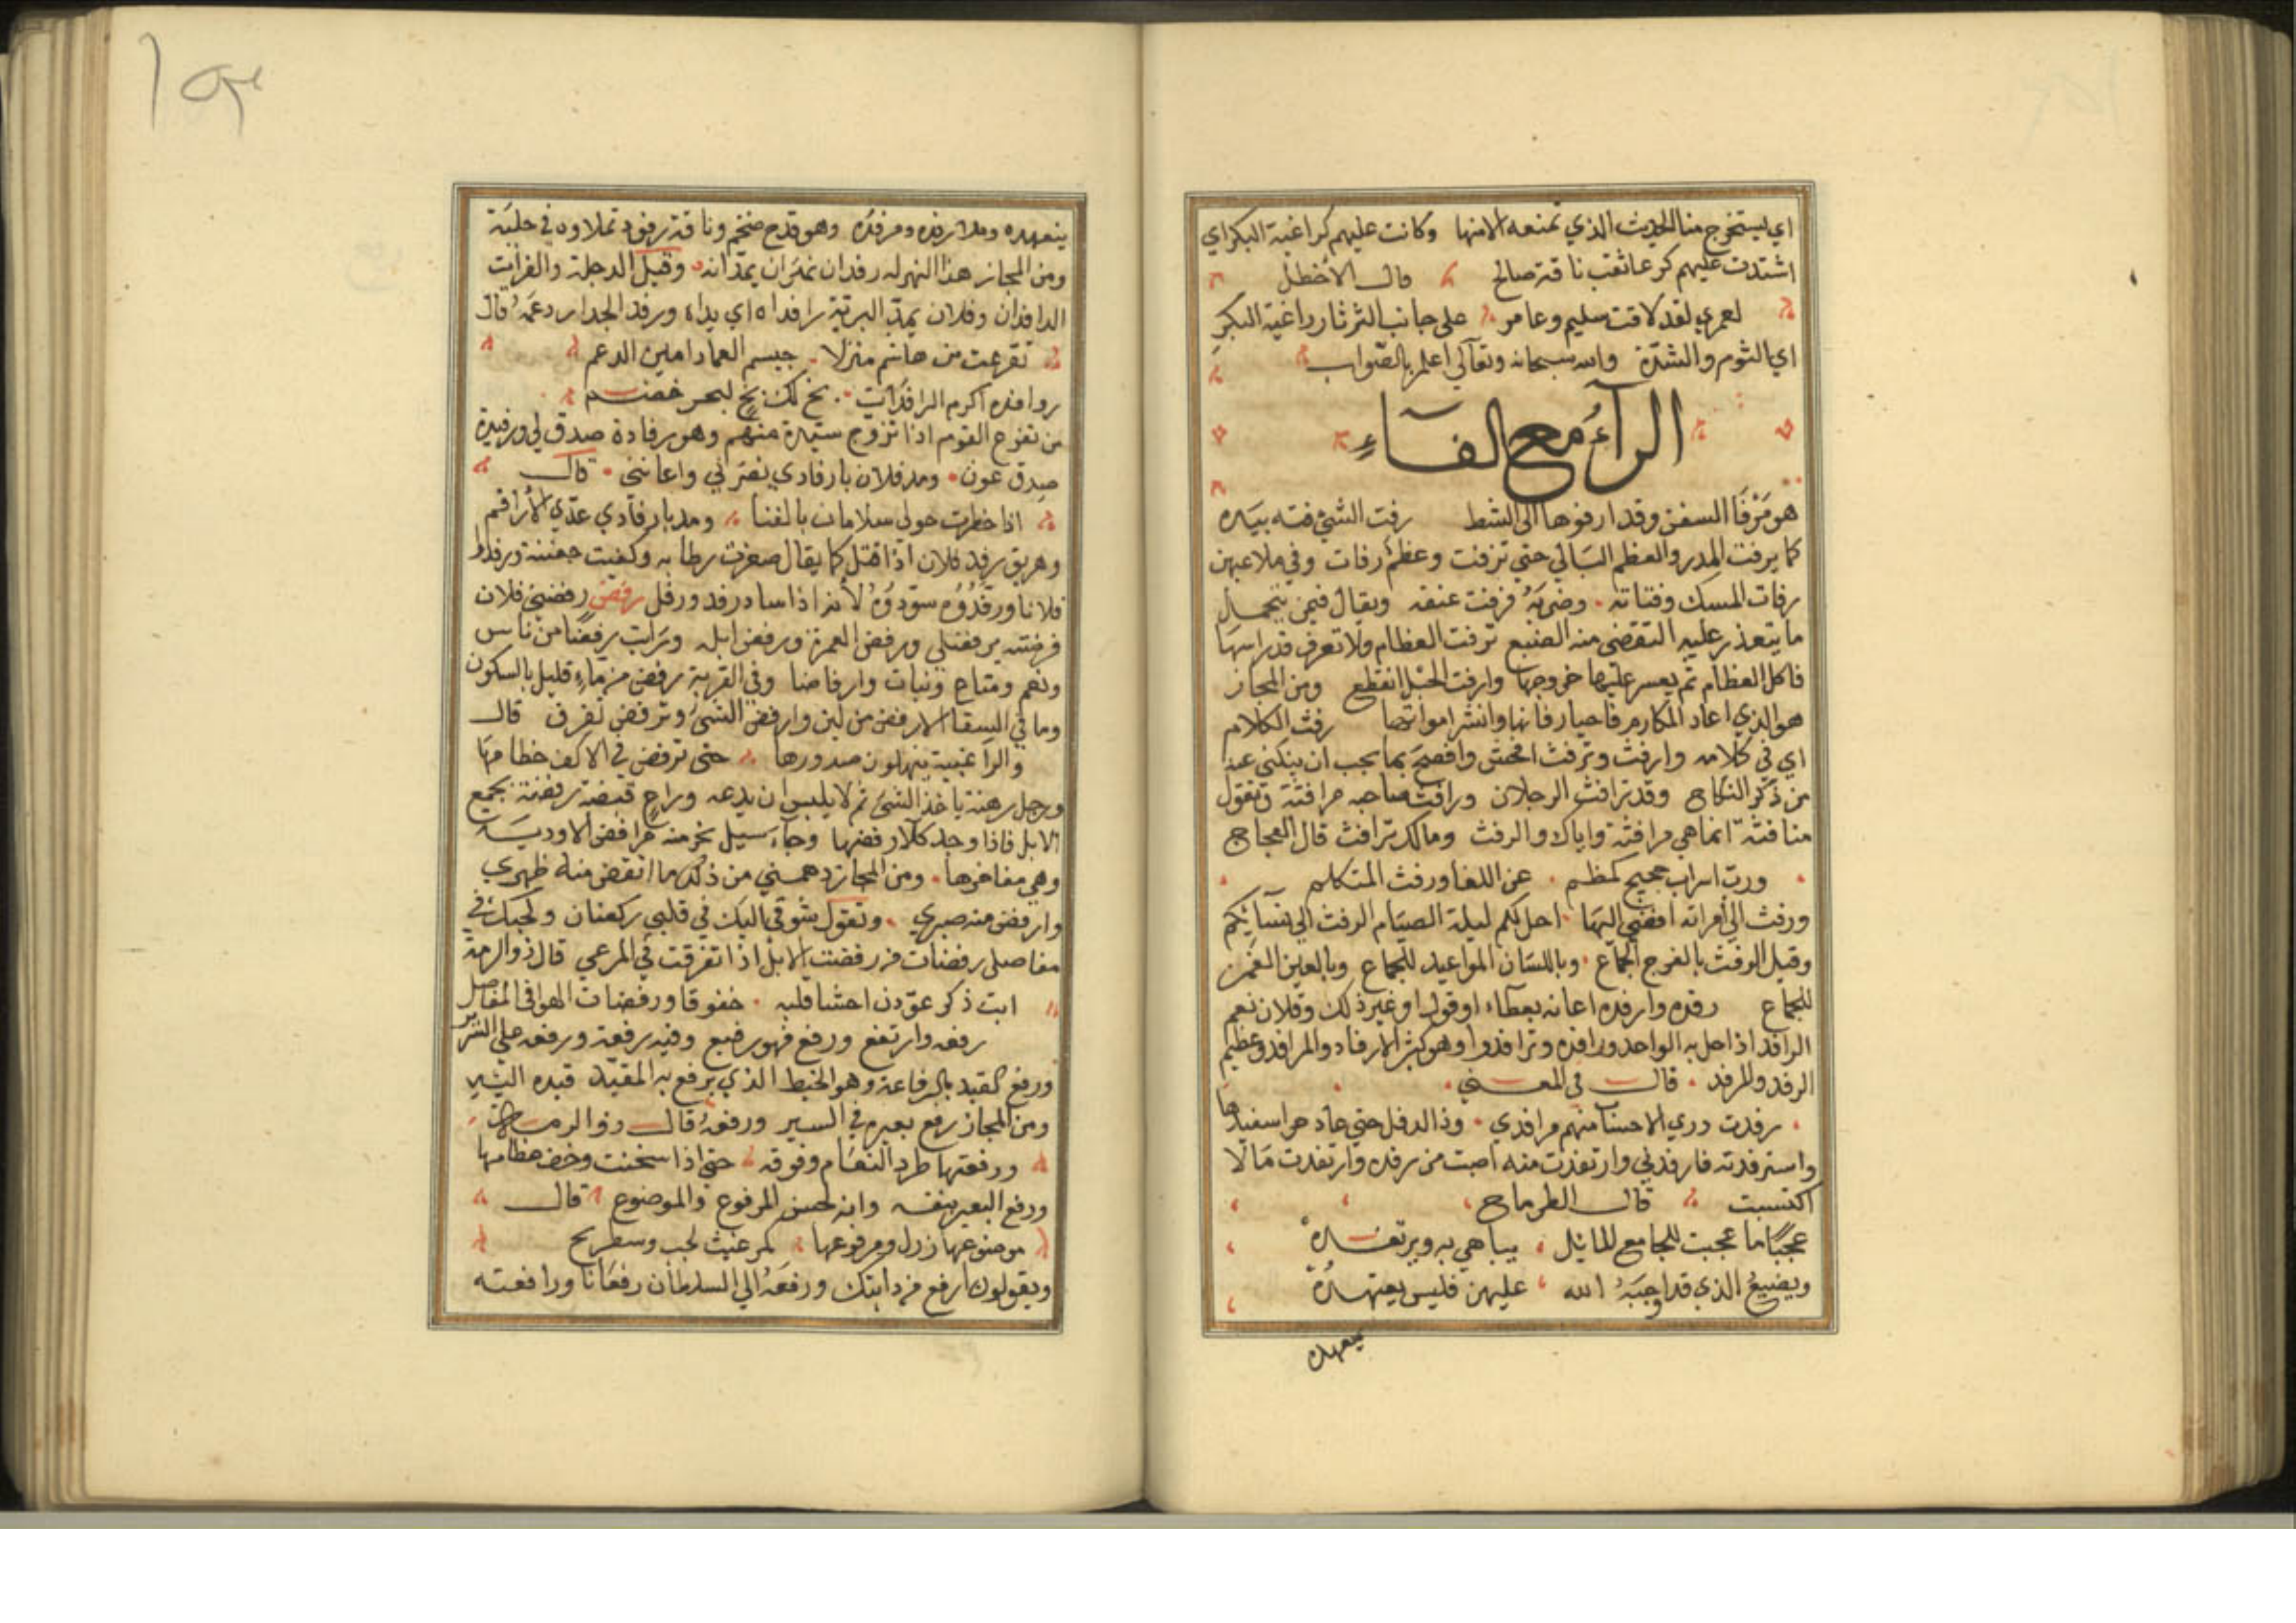 اي يستخرج منا الحديث الذي تمنعه الا منها وكانت عليهم كراغية البكر اي
اشتدت عليهم كرغا ثقب ناقة صالح قال الاخطل
لعمري لقد لاقت سليم وعامر على جانب الثرثار راغية البكر
اي الشوم والشدة والله سبحانه وتعالى اعلم بالصواب
الرآء مع الفاء
هو مَرْفَأ السفن وقد ارفوها الى الشط رفت الشئ فته بيده
كما يرفت المدر والعظم البالي حتي ترفت وعظم رفات وفي ملاعبهن
رفات المسك وفتاته وضربه فرفت عنقه ويقال فيمن يتحمل
ما يتعذر عليه التفصي منه الضبع ترفت العظام ولا تعرف قدر استها
فاكل العظام ثم يعسر عليها خروجها وارفت الحبل انقطع ومن المجاز
هو الذي اعاد المكارم فاحيا رفاتها وانشر امواتها رفث الكلام
اي في كلامه وارفث وترفث افحش وافصح بما يجب ان يتكنى عنه
من ذكر النكاح وقد ترافث الرجلان ورافث صاحبه مرافثة وتقول
منافثة انما هي مرافثة واياك والرفث ومالك ترافث قال العجاج
ورب اسراب حجيج كظم عن اللغا ورفث المتكلم
ورفث الي امراته افضي اليها احل لكم ليلة الصيام الرفث الى نسآئكم
وقيل الرفث بالفرج الجماع وباللسان المواعيد للجماع وبالعين الغمز
للجماع رفده وارفده اعانه بعطاء او قول او غير ذلك وفلان نعم
الرافد اذا حل به الواحد ورافده وترافدوا وهو كثير الارفاد والمرافد وعظيم
الرفد والمرفد قال في المعنى
رفدت ذري الاحساب منهم مرافدي وذا الدفل حتي عاد حرا سفيدها
واسترفدته فارفدني وارتفدت منه اصبت من رفده وارتفدت مالا
اكتسبت قال الطرماح
عجبا ما عجبت للجامع المال يباهي به ويرتفده
ويضيع الذي قد اوجبه الله عليهن فليس يعتهده
يتعهده
يتعهده وملا رفده ومرفده وهو قدح ضخم وناقة رفود تملاوه في حلبة
ومن المجاز هذا النهر له رفدان نهران يمدانه وقيل الدجلة والفرات
الرافدان وفلان يمد البرية رافداه اي يداه ورفد الجدار دعمه قال
تفرعت من هاشم منزلا جسيم العماد امين الدعم
روافده اكرم الرافدات بخ لك بخ لبحر خضم
من تفرج القوم اذا تزوج سيدة منهم وهو رفادة صدق لي ورفيدة
صدق عون ومد فلان بارفادي نصرني واعانني قال
اذا خطرت حولي سلامان بالقنا ومد بارفادي عدي الأراقم
وهريق رفد فلان اذا قتل كما يقال صفرت وطابه وكفيت جفنته ورفدوا
فلانا ورفدوه سودوه لأنه اذا ساد رفد ورفل رفض رفضني فلان
فرفضته يرفضني ورفض العمرة ورفض ابله ورايت رفضا من ناس
ونعم ومتاع ونبات وارفاضا وفي القربة رفض من ماء قليل بالسكون
وما في السقا الا رفض من لبن وارفض الشئ وترفض تفرق قال
والراغبية ينهلون صدورها حتى ترفض في الاكف خطامها
ورجل رهنة ياخذ الشئ ثم لا يلبس ان يدعه وراع قبضة رفضة يجمع
الابل فاذا وجد كلأ رفضها وجآء سيل نخر منه مرافض الاودية
وهي مفاجرها ومن المجاز دهمني من ذلك ما انقض منه ظهري
وارفض منه صبري وتقول بشوقي اليك في قلبي ركضان ولحبك في
مفاصلي رفضات من رفضت الابل اذا تفرقت في المرعي قال ذو الرمة
ابت ذكر عودن احشا قلبه خفوقا ورفضات الهوا في المفاصل
رفعه وارتفع ورفع فهو رفيع وفيه رفعة ورفعه على السرير
ورفع المقيد بالرفاعة وهو الخيط الذي يرفع به المقيد قيده اليه
ومن المجاز رفع بعيره في السير ورفعه قال ذو الرمة
ورفعتها طرد النعام وفوقه حتي اذا سخنت وخف عظامها
ورفع البعير بنفسه وانه لحسن المرفوع والموضوع قال
موضوعها زول ومرفوعها كمر غيث لجب وسط ريح
ويقولون ارفع من دابتك ورفعه الي السلطان رفعانا ورافعته